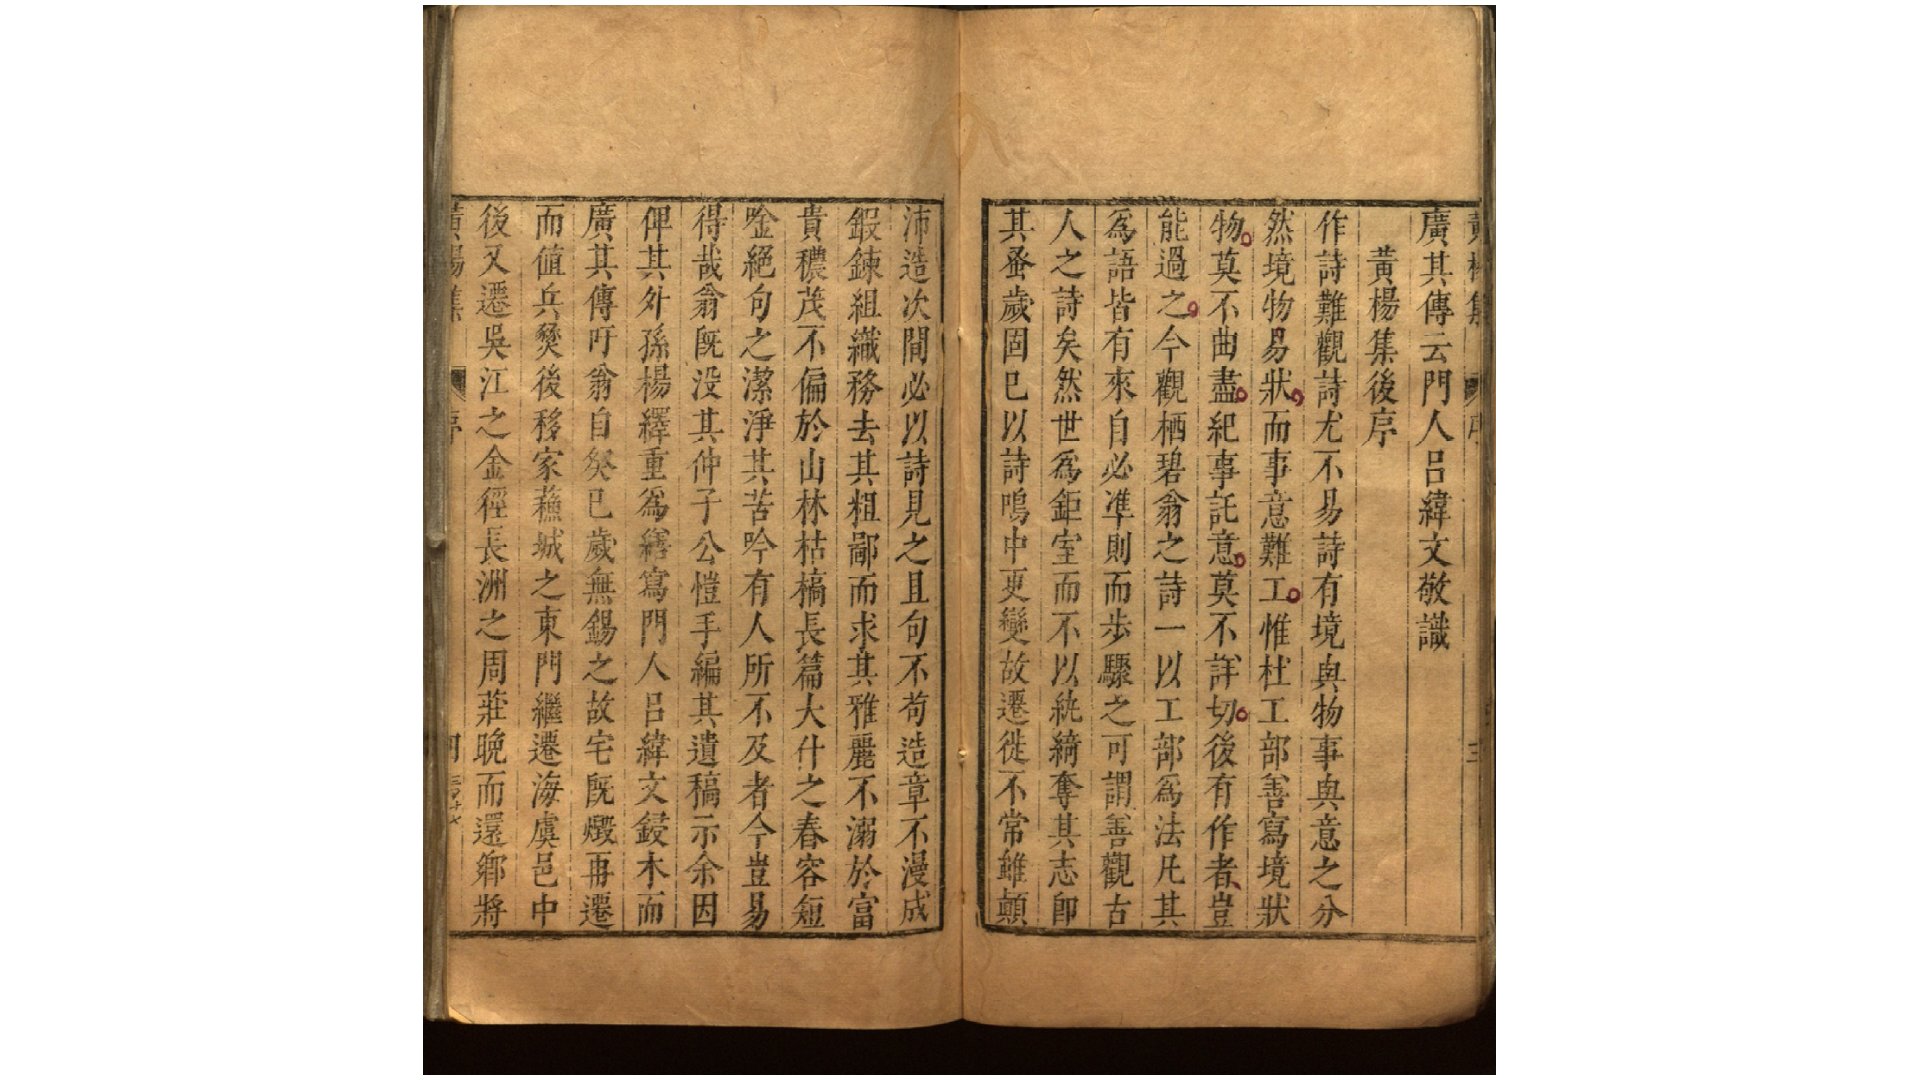 黄楊集 序 三
廣其傳云門人呂緯文敬識
黃楊集後序
作詩難觀詩尤不易詩有境與物事與意之分
然境物易狀而事意難工惟杜工部善寫境狀
物莫不曲盡紀事託意莫不詳切後有作者豈
能過之今觀栖碧翁之詩一以工部爲法凡其
爲語皆有來自必準則而步驟之可謂善觀古
人之詩矣然世爲鉅室而不以紈綺奪其志卽
其蚤歲固已以詩鳴中更變故遷徙不常雖顛
沛造次間必以詩見之且句不苟造章不漫成
鍜鍊組織務去其粗鄙而求其雅麗不溺於富
貴穠茂不偏於山林枯槁長篇大什之春容短
唫絕句之潔淨其苦吟有人所不及者今豈易
得哉翁旣没其仲子公愷手編其遺稿示余因
俾其外孫楊繹重爲繕寫門人呂緯文鋟木而
廣其傳吁翁自癸巳歲無錫之故宅旣燬再遷
而值兵燹後移家蘓城之東門繼遷海虞邑中
後又遷吳江之金徑長洲之周莊晚而還鄉將
黃楊集 序